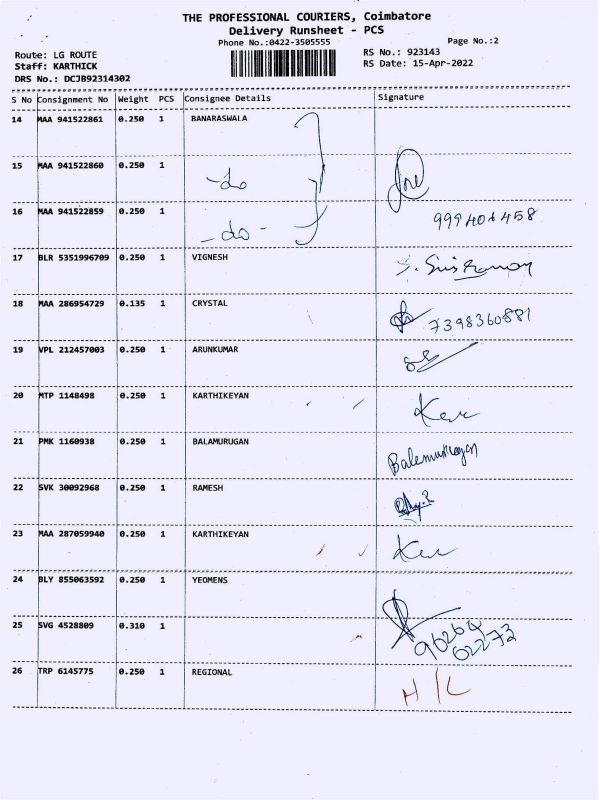 THE PROFESSIONAL COURIERS, Coimbatore
Delivery Runsheet - PCS
Phone No.:0422-3505555
Page No.:2
Route: LG ROUTE
RS No.: 923143
Staff: KARTHICK
RS Date: 15-Apr-2022
DRS No.: DCJB92314302
S No Consignment No Weight PCS Consignee Details Signature
14 MAA 941522861 0.250 1 BANARASWALA
15 MAA 941522860 0.250 1 -do
16 MAA 941522859 0.250 1 -do-
17 BLR 5351996709 0.250 1 VIGNESH
18 MAA 286954729 0.135 1 CRYSTAL 7398360881
19 VPL 212457003 0.250 1 ARUNKUMAR
20 MTP 1148498 0.250 1 KARTHIKEYAN
21 PMK 1160938 0.250 1 BALAMURUGAN Balamurugan
22 SVK 30092968 0.250 1 RAMESH
23 MAA 287059940 0.250 1 KARTHIKEYAN
24 BLY 855063592 0.250 1 YEOMENS
25 SVG 4528809 0.310 1 96264
62273
26 TRP 6145775 0.250 1 REGIONAL H/L